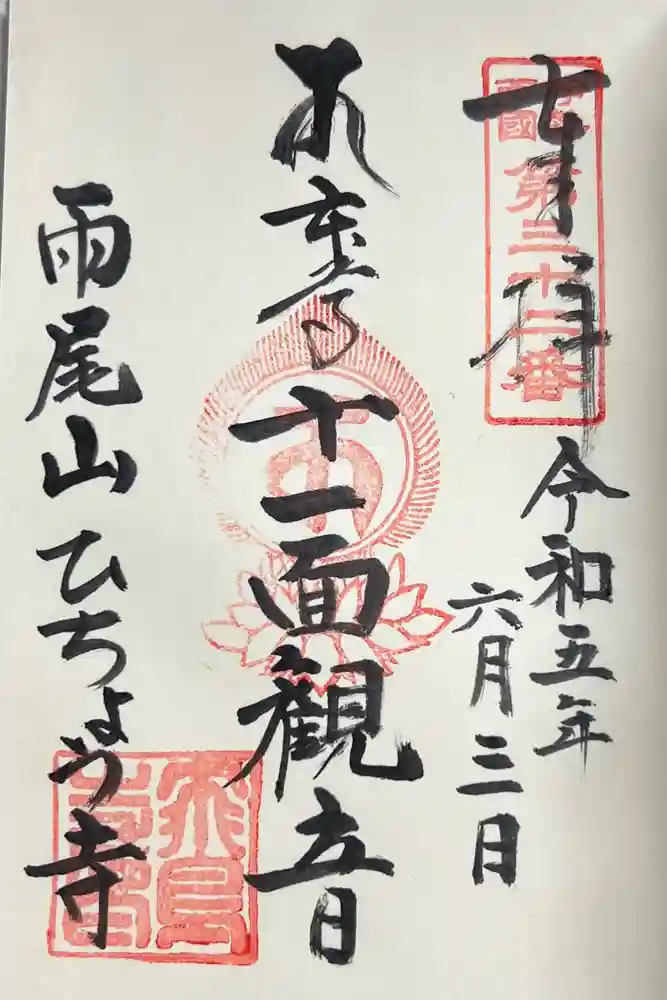 奉拝
第三十二番
令和五年
六月三日
本尊十一面観音
雨尾山ひちょう寺
飛鳥寺印